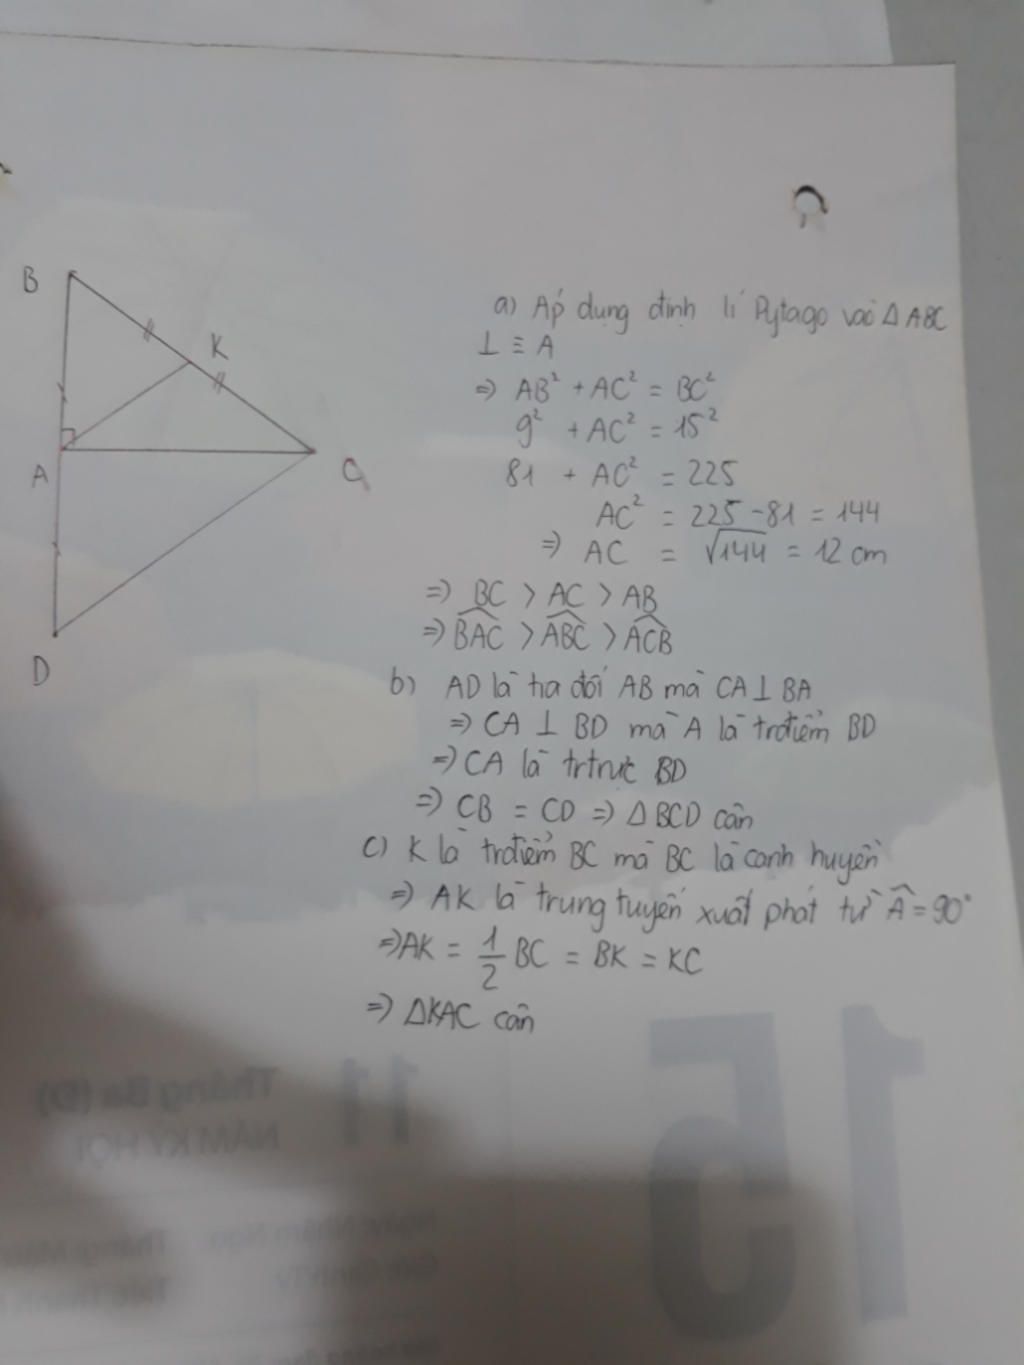 B
K
A
C
D
a) Áp dụng định lí Pytago vào Δ ABC
⊥ ≡ A
=> AB² + AC² = BC²
9² + AC² = 15²
81 + AC² = 225
AC² = 225 - 81 = 144
=> AC = √144 = 12 cm
=> BC > AC > AB
=> \widehat{BAC} > \widehat{ABC} > \widehat{ACB}
b) AD là tia đối AB mà CA ⊥ BA
=> CA ⊥ BD mà A là trđiểm BD
=> CA là trtrực BD
=> CB = CD => Δ BCD cân
c) K là trđiểm BC mà BC là cạnh huyền
=> AK là trung tuyến xuất phát từ Â = 90°
=> AK = 1/2 BC = BK = KC
=> ΔKAC cân
15
11
Tháng Ba (Đ)
NĂM KỶ HỢI